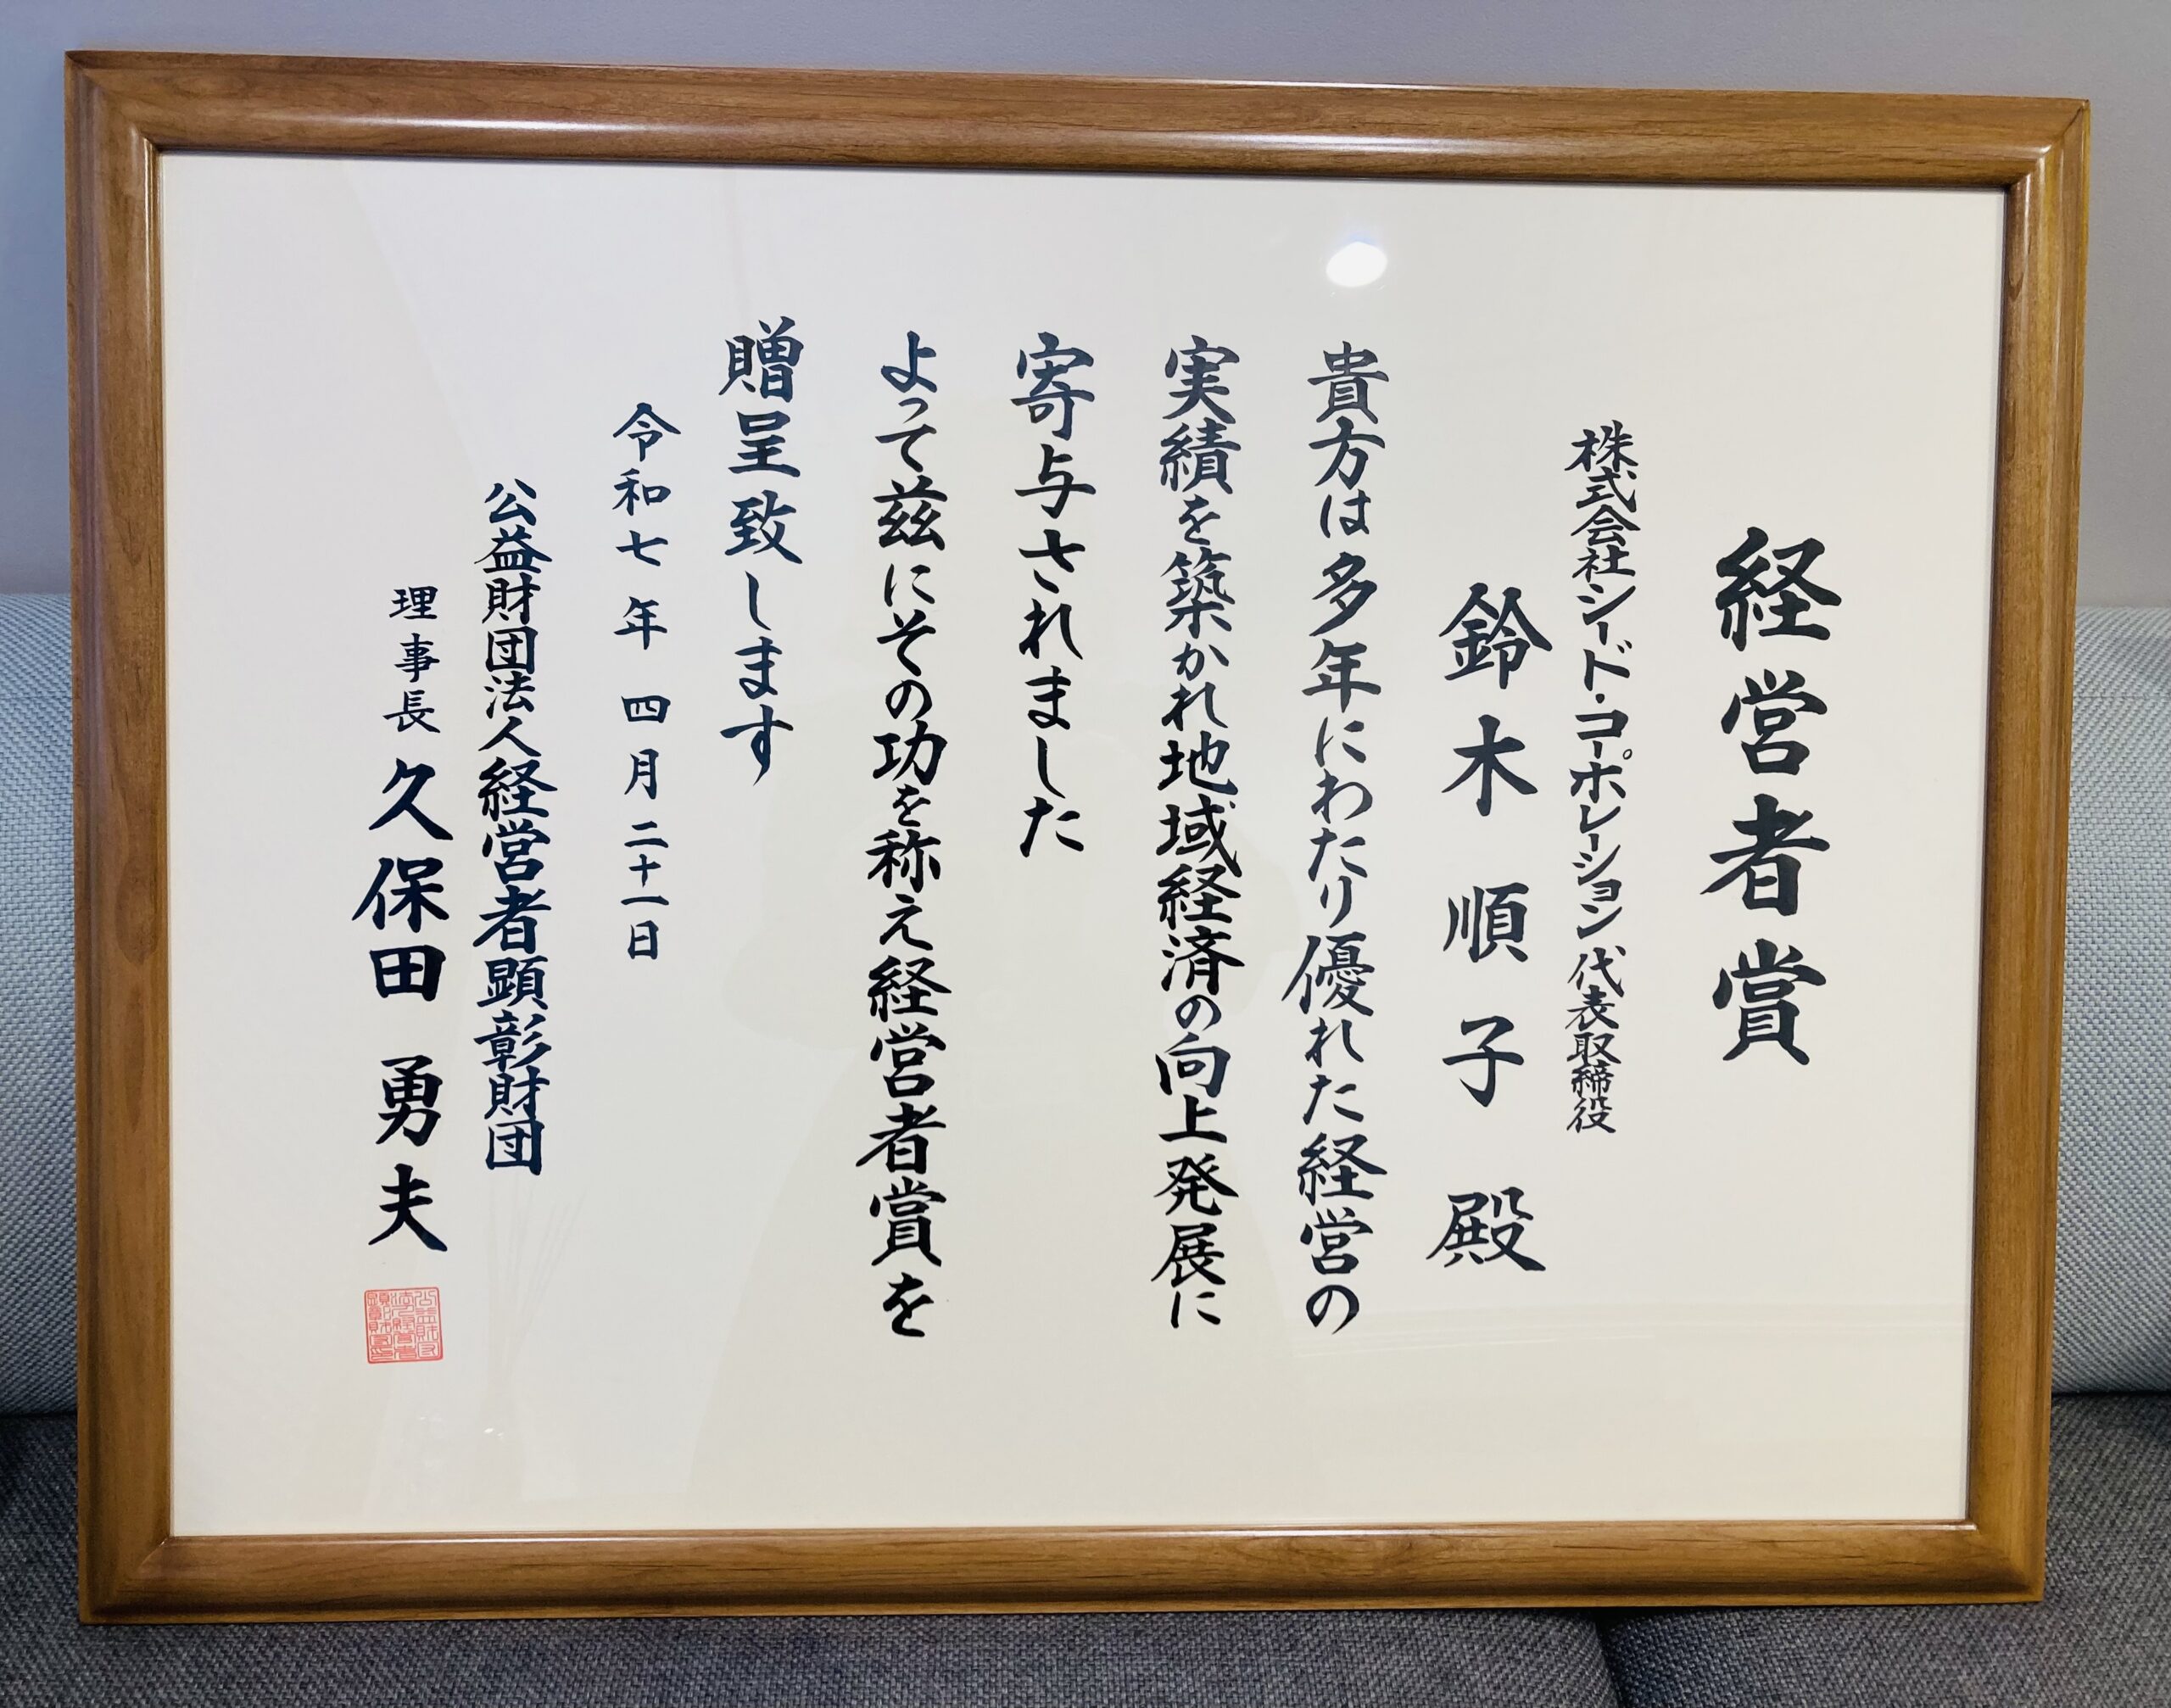 経営者賞
株式会社シード・コーポレーション 代表取締役
鈴木順子 殿
貴方は多年にわたり優れた経営の
実績を築かれ地域経済の向上発展に
寄与されました
よって茲にその功を称え経営者賞を
贈呈致します
令和七年 四月二十一日
公益財団法人経営者顕彰財団
理事長 久保田 勇夫